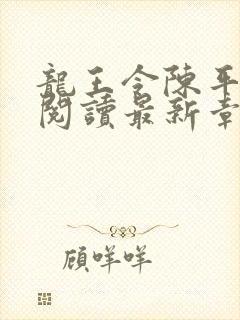 龍王令陳平
閱讀最新章
顾咩咩